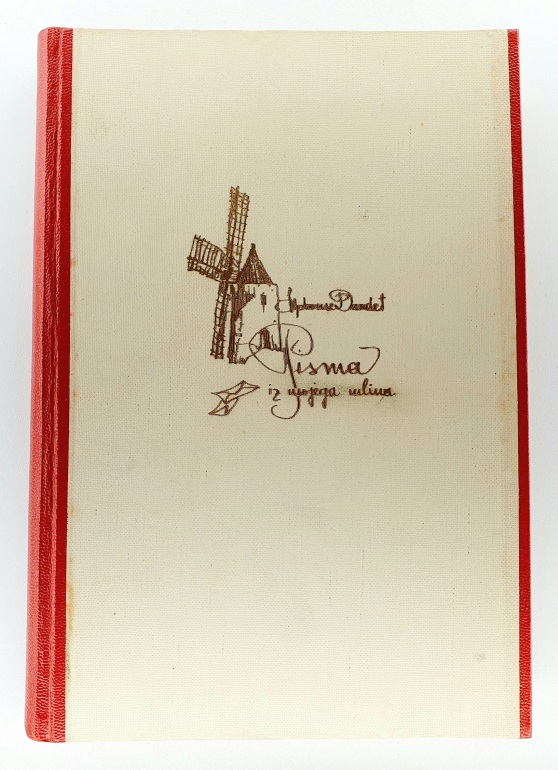 Alphonse Daudet
Pisma
iz mojega mlina